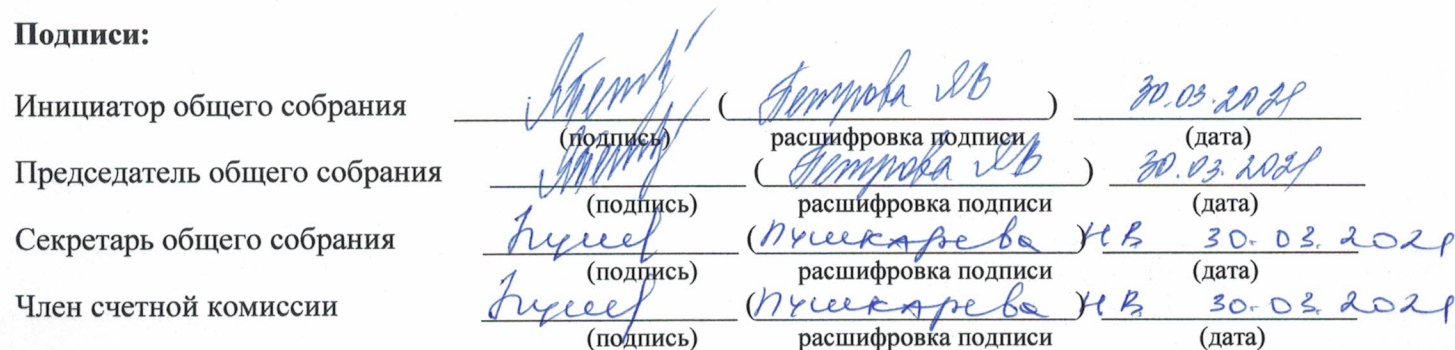 Подписи:
Инициатор общего собрания ( Петрова ЯВ ) 30.03.2021
(подпись) расшифровка подписи (дата)
Председатель общего собрания ( Петрова ЯВ ) 30.03.2021
(подпись) расшифровка подписи (дата)
Секретарь общего собрания (Пушкарева )НВ 30.03.2021
(подпись) расшифровка подписи (дата)
Член счетной комиссии (Пушкарева )НВ 30.03.2021
(подпись) расшифровка подписи (дата)